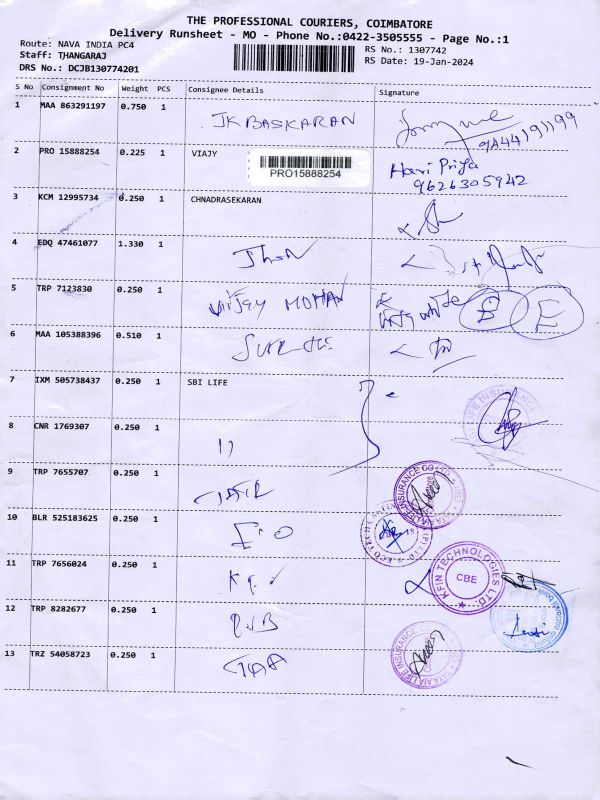 THE PROFESSIONAL COURIERS, COIMBATORE
Delivery Runsheet - MO - Phone No.:0422-3505555 - Page No.:1
Route: NAVA INDIA PC4
RS No.: 1307742
Staff: THANGARAJ
RS Date: 19-Jan-2024
DRS No.: DCJB130774201
S No Consignment No Weight PCS Consignee Details Signature
1 MAA 863291197 0.750 1 JK BASKARAN
9444191199
2 PRO 15888254 0.225 1 VIAJY
PRO15888254
Hari Priya
9626305942
3 KCM 12995734 0.250 1 CHNADRASEKARAN
4 EDQ 47461077 1.330 1 Jhon
5 TRP 7123830 0.250 1 Vijay MOHAN
6 MAA 105388396 0.510 1
7 IXM 505738437 0.250 1 SBI LIFE
LIFE INSURANCE
8 CNR 1769307 0.250 1 11
9 TRP 7655707 0.250 1
LIFE INSURANCE CO
10 BLR 525183625 0.250 1
ECO TECH
11 TRP 7656024 0.250 1
KFIN TECHNOLOGIES LTD.
CBE
12 TRP 8282677 0.250 1
13 TRZ 54058723 0.250 1
TATA AIA LIFE INSURANCE CO